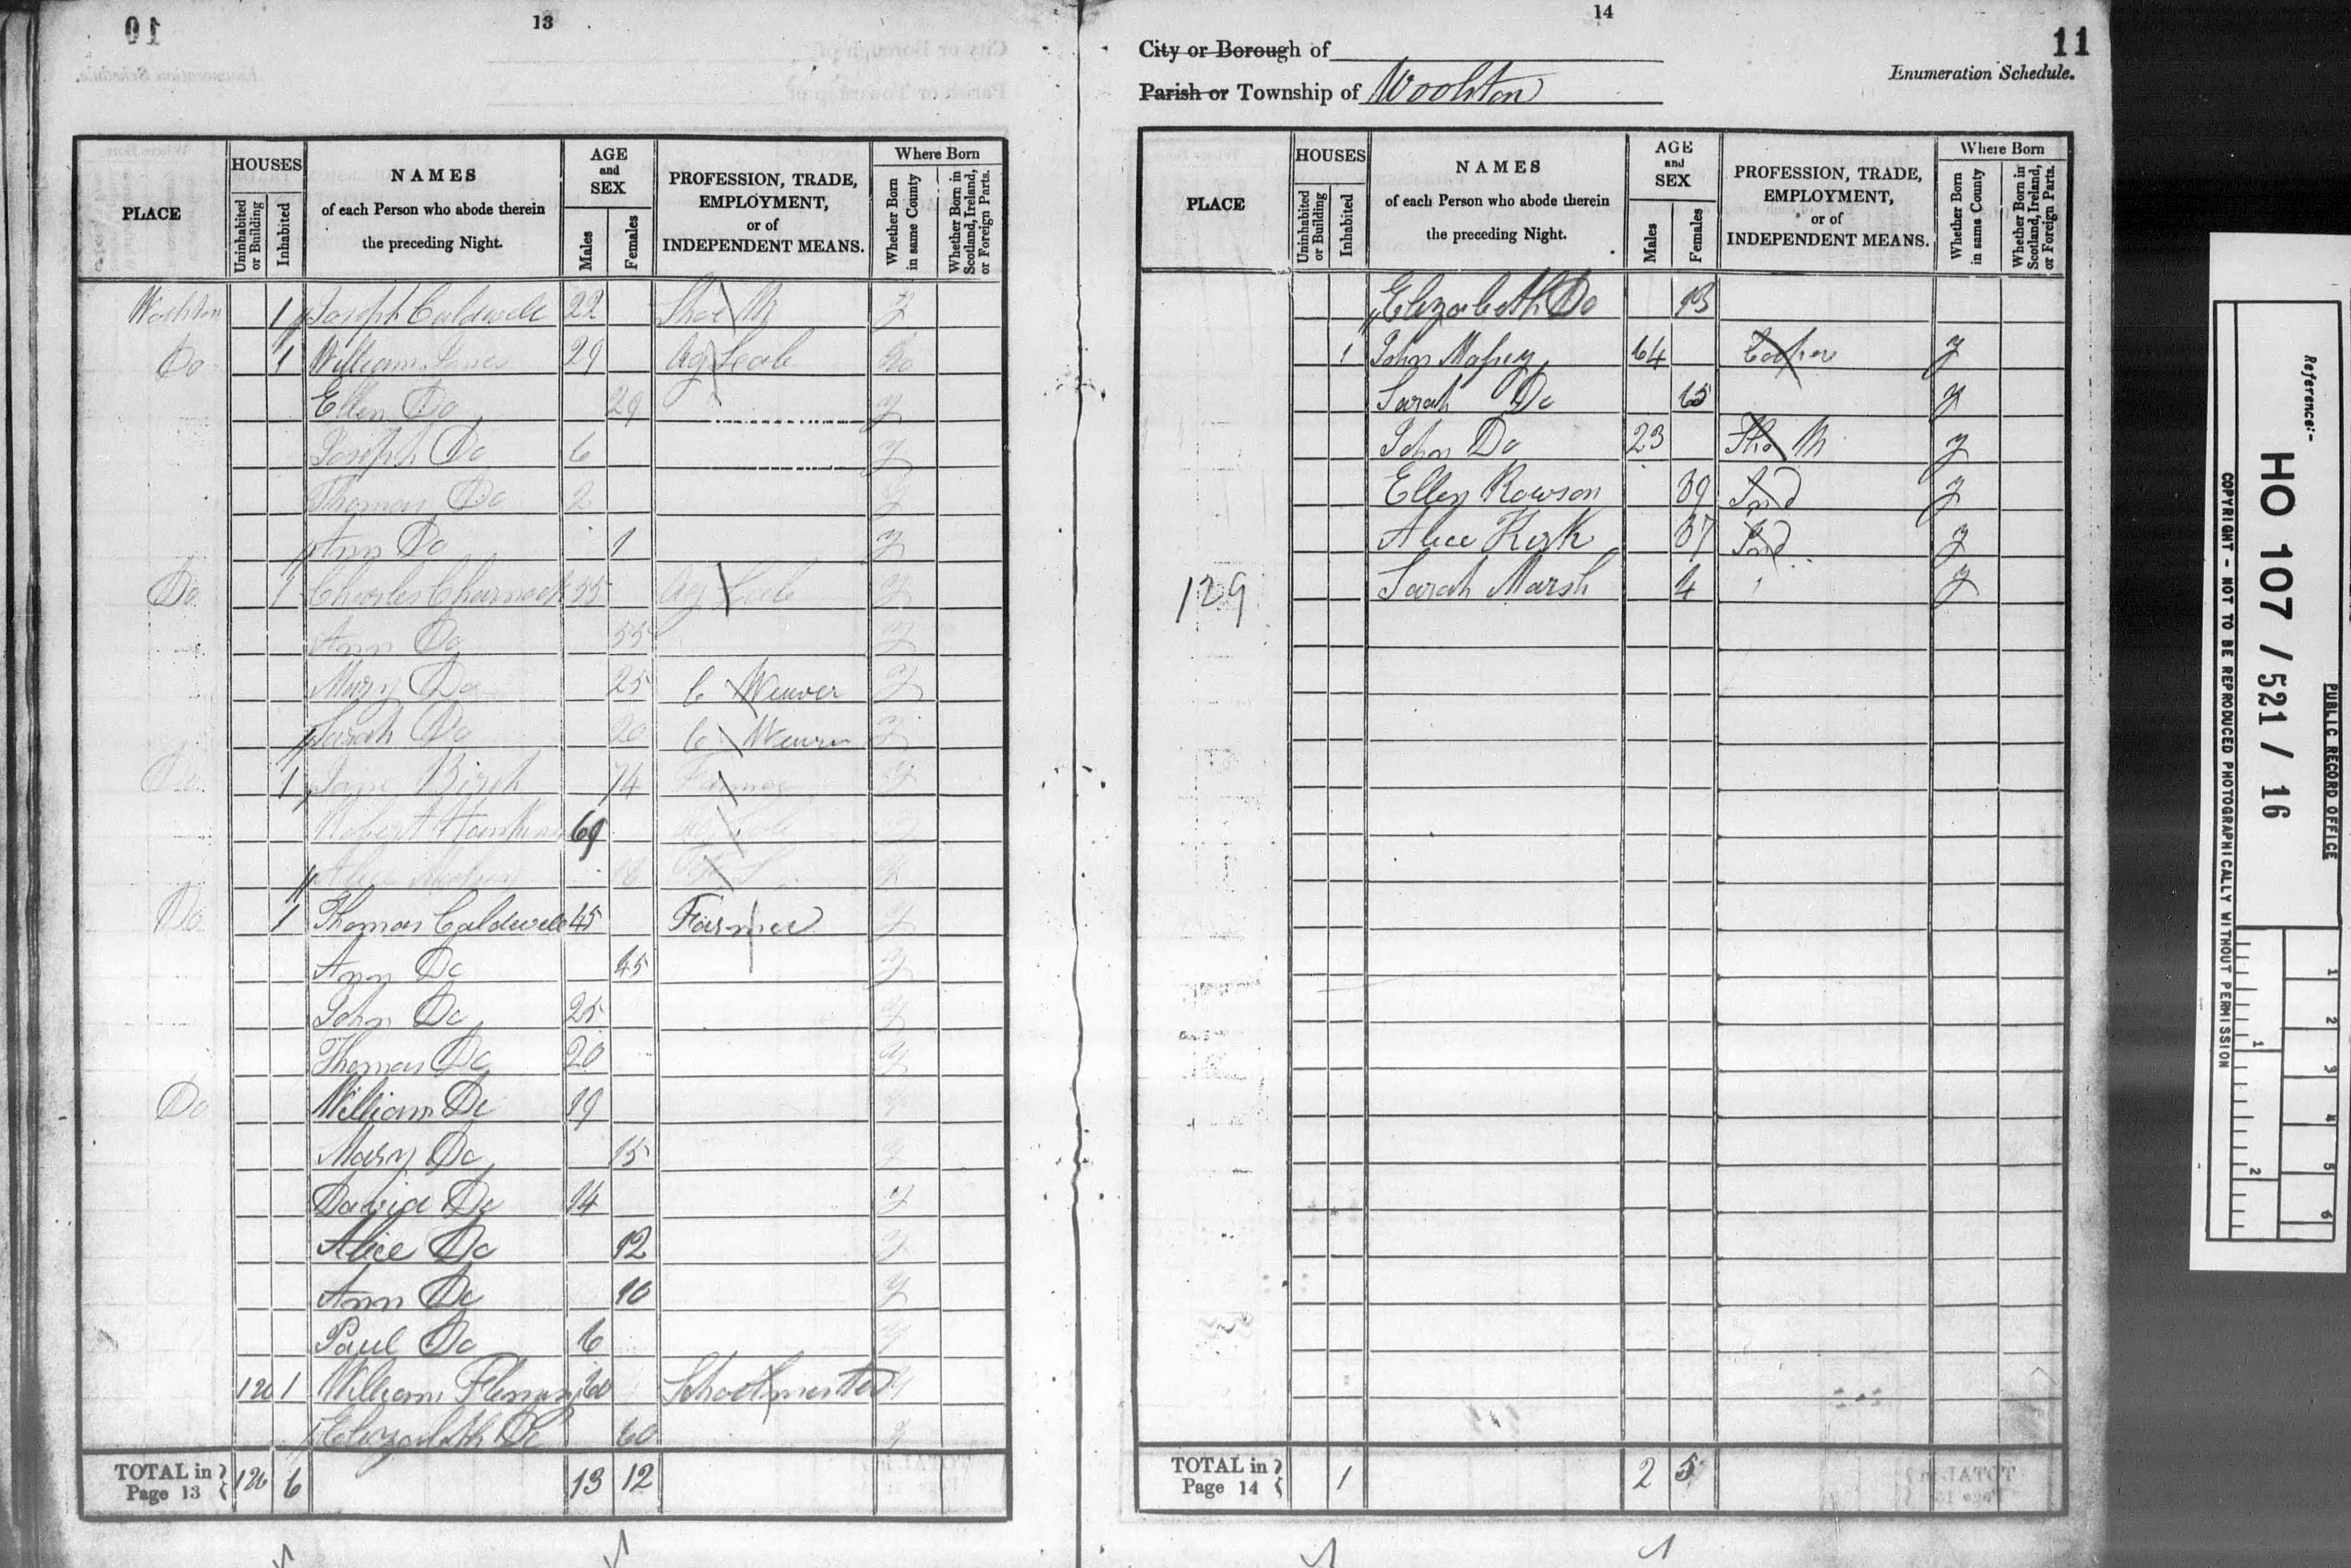 13
HOUSES
NAMES
AGE and SEX
PROFESSION, TRADE, EMPLOYMENT, or of INDEPENDENT MEANS.
Where Born
PLACE
Uninhabited or Building
Inhabited
of each Person who abode therein the preceding Night.
Males
Females
Whether Born in same County
Whether Born in Scotland, Ireland, or Foreign Parts.
Woolston 1 Joseph Caldwell 22 Shoe M y
Do 1 William 29 Ag Lab No
Ellen Do 29 y
Joseph Do 6 y
Thomas Do 2 y
Ann Do 1 y
Do 1 Charles Charnock 55 Ag Lab y
Ann Do 55 y
Mary Do 25 C Weaver y
Sarah Do 20 C Weaver y
Do 1 Jane Birch 74 Farmer y
Robert 69 Ag Lab y
Alice y
Do 1 Thomas Caldwell 45 Farmer y
Ann Do 45 y
John Do 25 y
Thomas Do 20 y
Do William Do 19 y
Mary Do 15 y
David Do 14 y
Alice Do 12 y
Ann Do 10 y
Paul Do 6 y
126 1 William Fleming 60 Schoolmaster y
Elizabeth Do 60 y
TOTAL in Page 13 126 6 13 12
14
11
City or Borough of
Enumeration Schedule.
Parish or Township of Woolston
PLACE
HOUSES
Uninhabited or Building
Inhabited
NAMES
of each Person who abode therein the preceding Night.
AGE and SEX
Males
Females
PROFESSION, TRADE, EMPLOYMENT, or of INDEPENDENT MEANS.
Where Born
Whether Born in same County
Whether Born in Scotland, Ireland, or Foreign Parts.
Elizabeth Do 13
1 John Mapey 64 y
Sarah Do 65 y
John Do 23 Sho M y
Ellen Rowson 39 Ind y
Alice Kirk 37 Ind y
129 Sarah Marsh 4 y
TOTAL in Page 14 1 2 5
Reference:-
HO 107 / 521 / 16
PUBLIC RECORD OFFICE
COPYRIGHT - NOT TO BE REPRODUCED PHOTOGRAPHICALLY WITHOUT PERMISSION
1
2
1
2
3
4
5
6